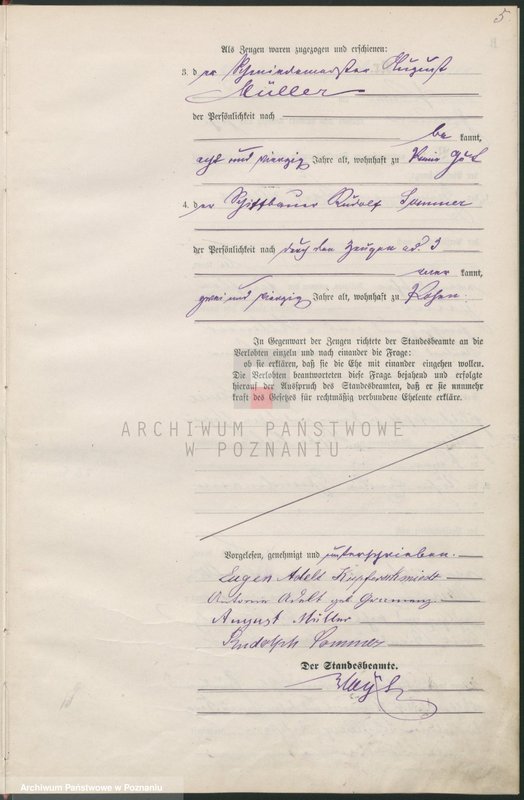 5.
Als Zeugen waren zugezogen und erschienen:
3. der Schmiedemeister August
Müller
der Persönlichkeit nach
be kannt,
acht und vierzig Jahre alt, wohnhaft zu Gut
4. der Rudolf Sommer
der Persönlichkeit nach durch den Zeugen ad. 3
aner kannt,
zwei und vierzig Jahre alt, wohnhaft zu
In Gegenwart der Zeugen richtete der Standesbeamte an die
Verlobten einzeln und nach einander die Frage:
ob sie erklären, daß sie die Ehe mit einander eingehen wollen.
Die Verlobten beantworteten diese Frage bejahend und erfolgte
hierauf der Ausspruch des Standesbeamten, daß er sie nunmehr
kraft des Gesetzes für rechtmäßig verbundene Eheleute erkläre.
ARCHIWUM PAŃSTWOWE
W POZNANIU
Vorgelesen, genehmigt und unterschrieben.
Eugen Adelt Kupferschmiedt
Adelt geb
August Müller
Rudolph Sommer
Der Standesbeamte.
Archiwum Państwowe w Poznaniu